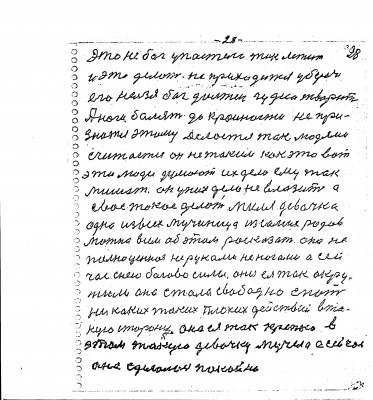 - 28 -
28
Это не бог упостели так летит
и это делот. не приходится убрач
его незя бог должен чудиса творить
Янога балят до крайности не при-
знатя этому делоется так модлии
считается он не таким как это вот
эти люди думают их дело ему так
мишат. он уних дело не влазить а
свае такое делот милля девачка
одна из всех мучиница из самих родов
можна вим об этом росказат она не
полноценная не руками не ногами а сей
час снею богово сили, они ея так окру,
жили она стала свабодно спат
ни каких таких плохих действий вта-
кую сторону она ея так крепко в
этом такую девочку мучела а сейчас
она сделолся покойна